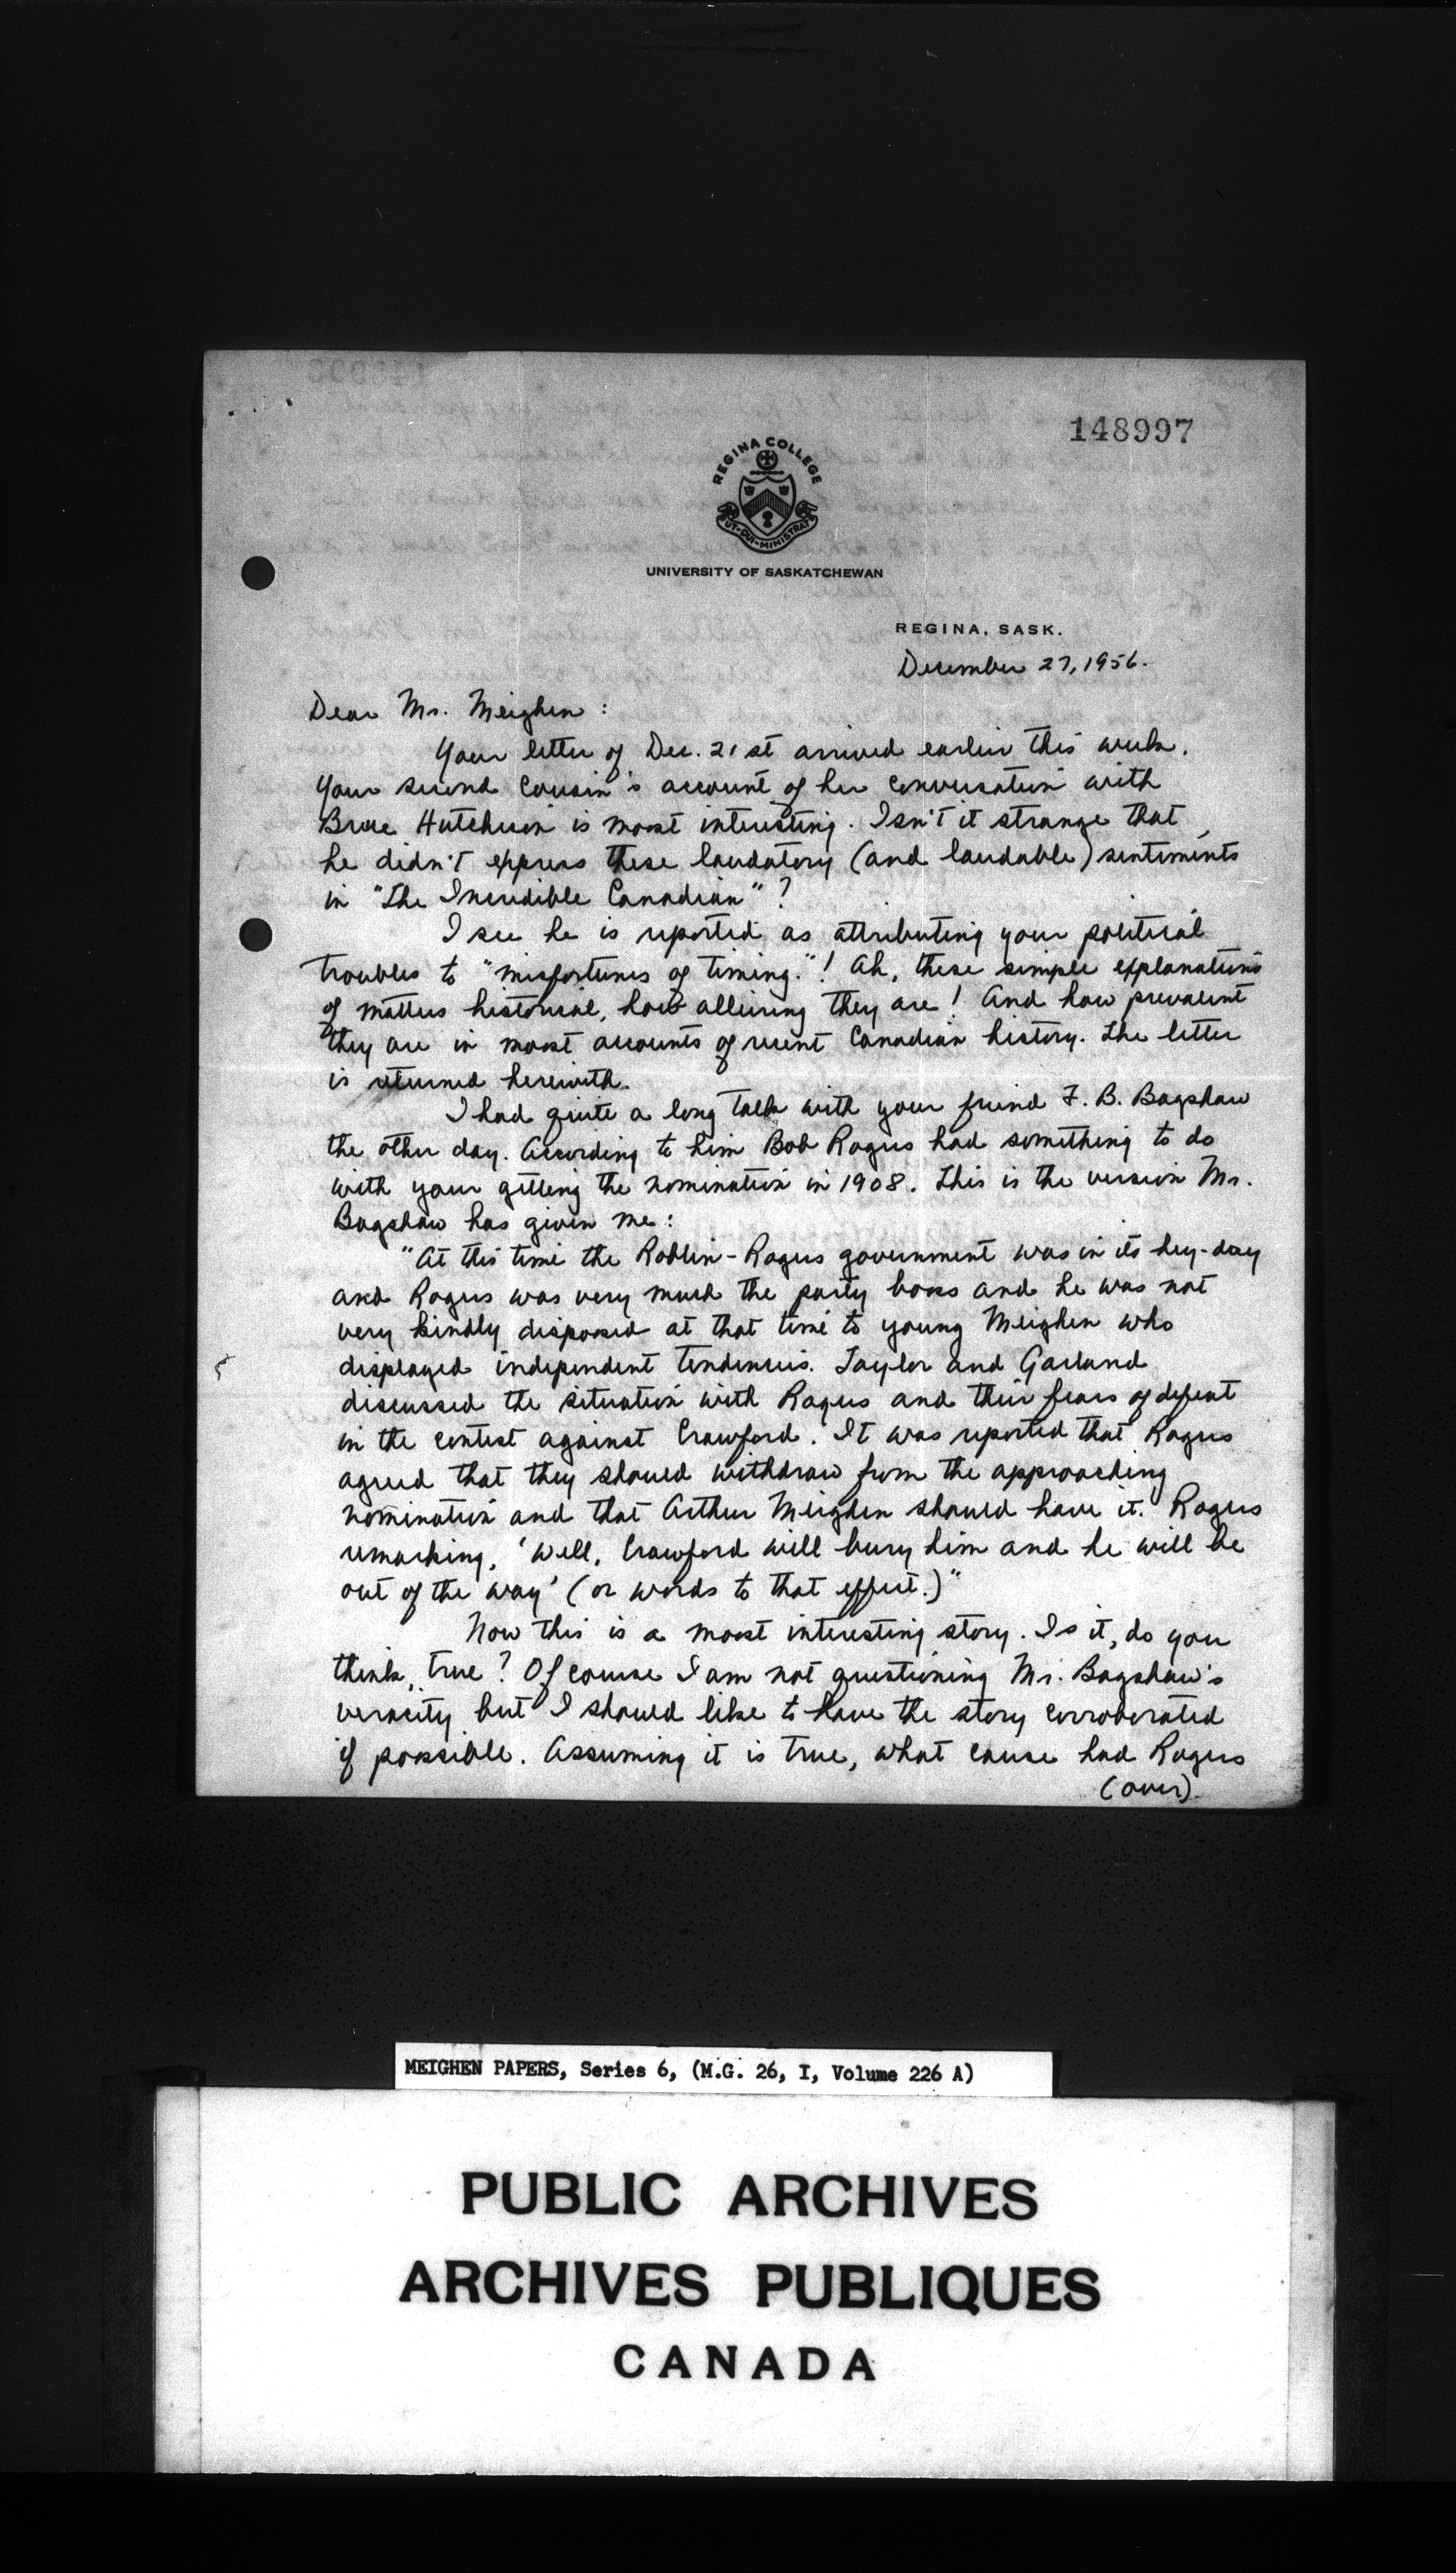 148997
REGINA COLLEGE
UT·QUI·MINISTRAT
UNIVERSITY OF SASKATCHEWAN
REGINA, SASK.
December 27, 1956.
Dear Mr. Meighen :
Your letter of Dec. 21st arrived earlier this week.
Your second cousin's account of her conversation with
Bruce Hutchison is most interesting. Isn't it strange that
he didn't express these laudatory (and laudable) sentiments
in "The Incredible Canadian" ?
I see he is reported as attributing your political
troubles to "misfortunes of timing."! Ah, these simple explanations
of matters historical, how alluring they are! And how prevalent
they are in most accounts of recent Canadian history. The letter
is returned herewith.
I had quite a long talk with your friend F. B. Bagshaw
the other day. According to him Bob Rogers had something to do
with your getting the nomination in 1908. This is the version Mr.
Bagshaw has given me :
"At this time the Roblin-Rogers government was in its hey-day
and Rogers was very much the party boss and he was not
very kindly disposed at that time to young Meighen who
displayed independent tendencies. Taylor and Garland
discussed the situation with Rogers and their fears of defeat
in the contest against Crawford. It was reported that Rogers
agreed that they should withdraw from the approaching
nomination and that Arthur Meighen should have it. Rogers
remarking, 'Well, Crawford will bury him and he will be
out of the way' (or words to that effect.)"
Now this is a most interesting story. Is it, do you
think, true? Of course I am not questioning Mr. Bagshaw's
veracity but I should like to have the story corroborated
if possible. Assuming it is true, what cause had Rogers
(over)
MEIGHEN PAPERS, Series 6, (M.G. 26, I, Volume 226 A)
PUBLIC ARCHIVES
ARCHIVES PUBLIQUES
CANADA